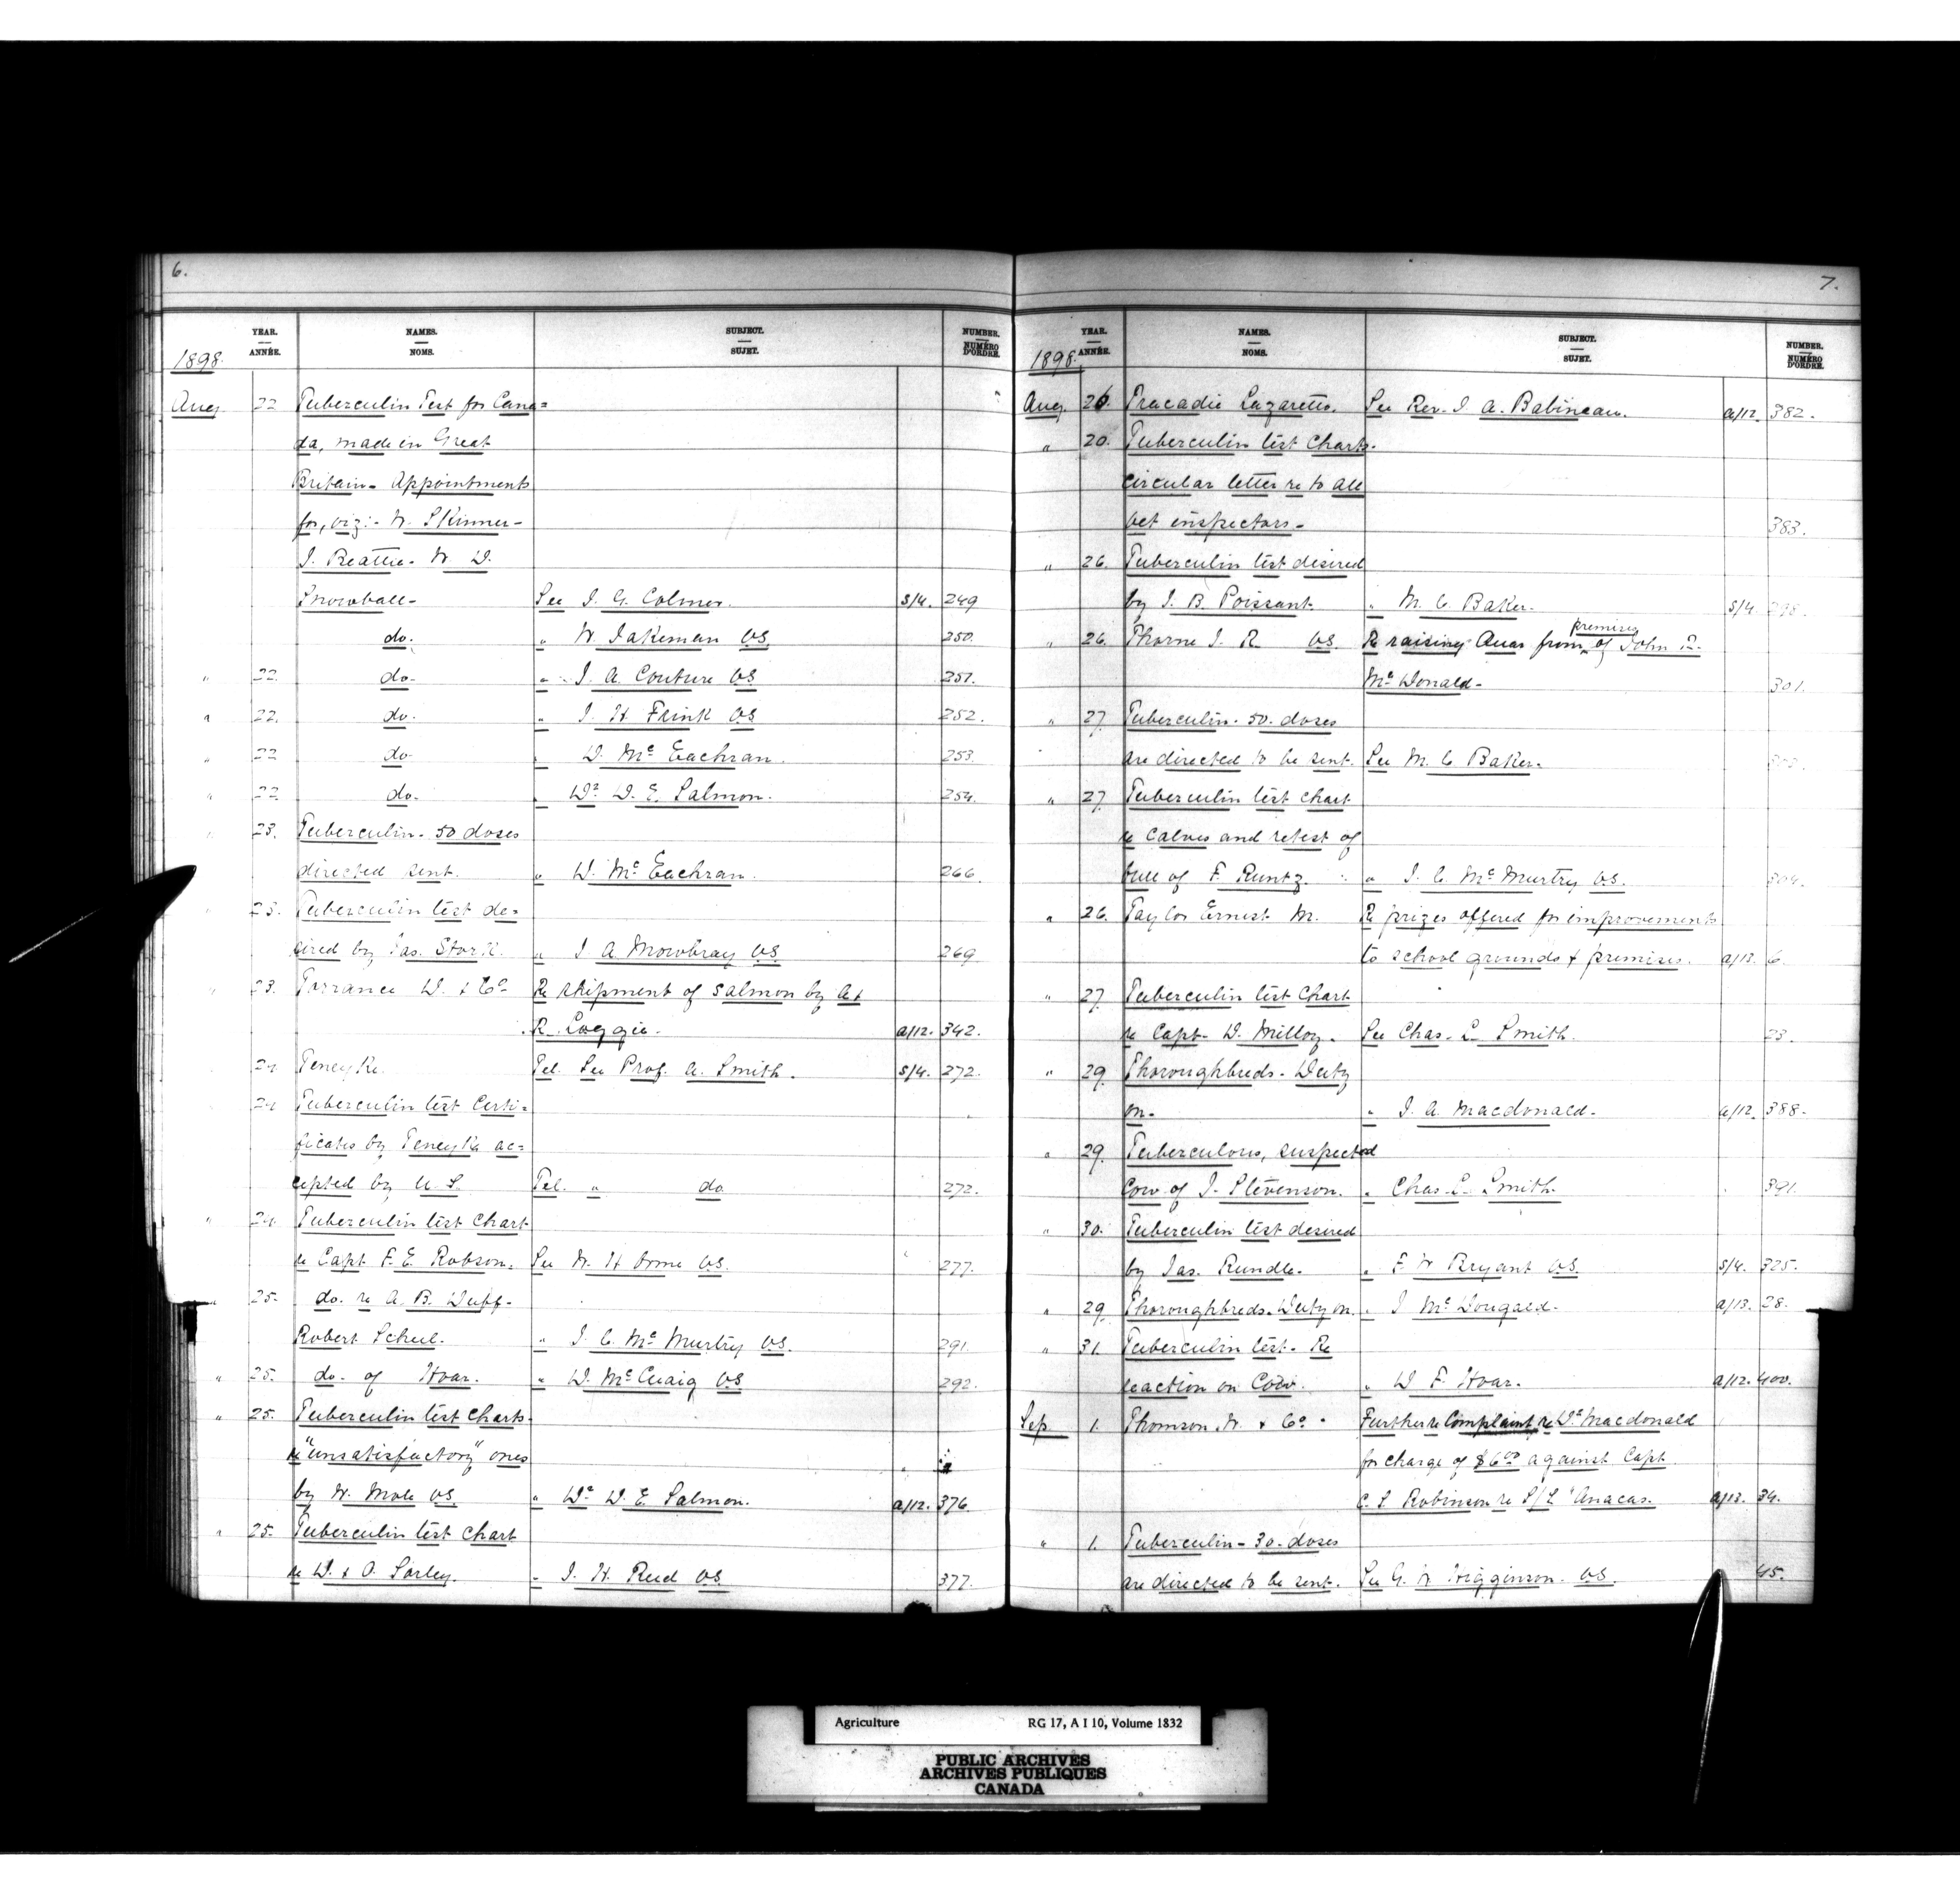 6.
YEAR. NAMES. SUBJECT. NUMBER.
1898. ANNÉE. NOMS. SUJET. NUMÉRO D'ORDRE.
Aug 22 Tuberculin Test for Cana=
da, made in Great
Britain - Appointments
for, viz:- W. Skinner-
J. Beattie - W. D.
Snowball - See J. G. Colmer. S/4. 249
do. " W. Jakeman V.S. 250.
" 22. do. " J. A. Couture V.S 251.
" 22. do. " J. H. Frink V.S 252.
" 22 do. " D. McEachran. 253.
" 22 do. " Dr D. E. Salmon. 254.
" 23. Tuberculin - 50 doses
directed sent. " D. McEachran. 266.
" 23. Tuberculin test de=
sired by Jas. Stork. " J A. Mowbray V.S. 269
" 23. Torrance D. & Co Re shipment of salmon by A &
R. Loggie. a/12. 342.
24 Teneyke. Tel. See Prof. A. Smith. S/4. 272.
24 Tuberculin test Certi=
ficates by Teneyke ac=
cepted by U.S. Tel. " do 272.
" 24. Tuberculin test Chart
re Capt F. E. Robson. See W. H Orme V.S. 277.
" 25. do. re A. B. Duff -
Robert Scheil. " J. C. McMurtry V.S. 291.
" 25. do. of Hoar. " D. McCuaig V.S 292.
" 25. Tuberculin test Charts
re "unsatisfactory" ones
by W. Mole V.S. " Dr D. E. Salmon. a/12. 376.
" 25. Tuberculin test Chart
re D. & O. Sorley. " J. H. Reed V.S. 377.
7.
YEAR. NAMES. SUBJECT. NUMBER.
1898. ANNÉE. NOMS. SUJET. NUMÉRO D'ORDRE.
Aug. 26. Tracadie Lazaretto. See Rev. J A. Babineau. a/12. 382.
" 20. Tuberculin test Charts.
Circular letter re to all
vet inspectors - 383.
" 26. Tuberculin test desired
by J. B. Poissant. " M. C. Baker. S/4 298.
premises
" 26. Thorne J. R. V.S. Re raising Quar from ^ of John
McDonald - 301.
" 27 Tuberculin - 50. doses
are directed to be sent. See M. C Baker.
" 27 Tuberculin test Chart
re Calves and retest of
bull of F. Runtz. " J. C. McMurtry V.S. 304.
" 26. Taylor Ernest M. Re prizes offered for improvements
to school grounds & premises. a/13. 6.
" 27. Tuberculin test Chart
re Capt. D. Milloy. See Chas. L Smith. 23.
" 29. Thoroughbreds - Duty
on - " J. A. Macdonald. a/12. 388.
" 29. Tuberculous, suspected
Cow of J. Stevenson. " Chas. L. Smith. 391.
" 30. Tuberculin test desired
by Jas. Rundle. " F W Bryant V.S. S/4. 325.
" 29. Thoroughbreds - Duty on. " J McDougald. a/13. 28.
" 31. Tuberculin test - Re
reaction on Cow. " D F. Hoar. a/12. 400.
Sep 1. Thomson W. & Co. Further re Complaint re Dr Macdonald
for charge of $6.00 against Capt
C. S. Robinson re S/S "Anacas. a/13. 34.
" 1. Tuberculin - 30. doses
are directed to be sent. See G. W Higginson. V.S. 45.
Agriculture RG 17, A I 10, Volume 1832
PUBLIC ARCHIVES
ARCHIVES PUBLIQUES
CANADA